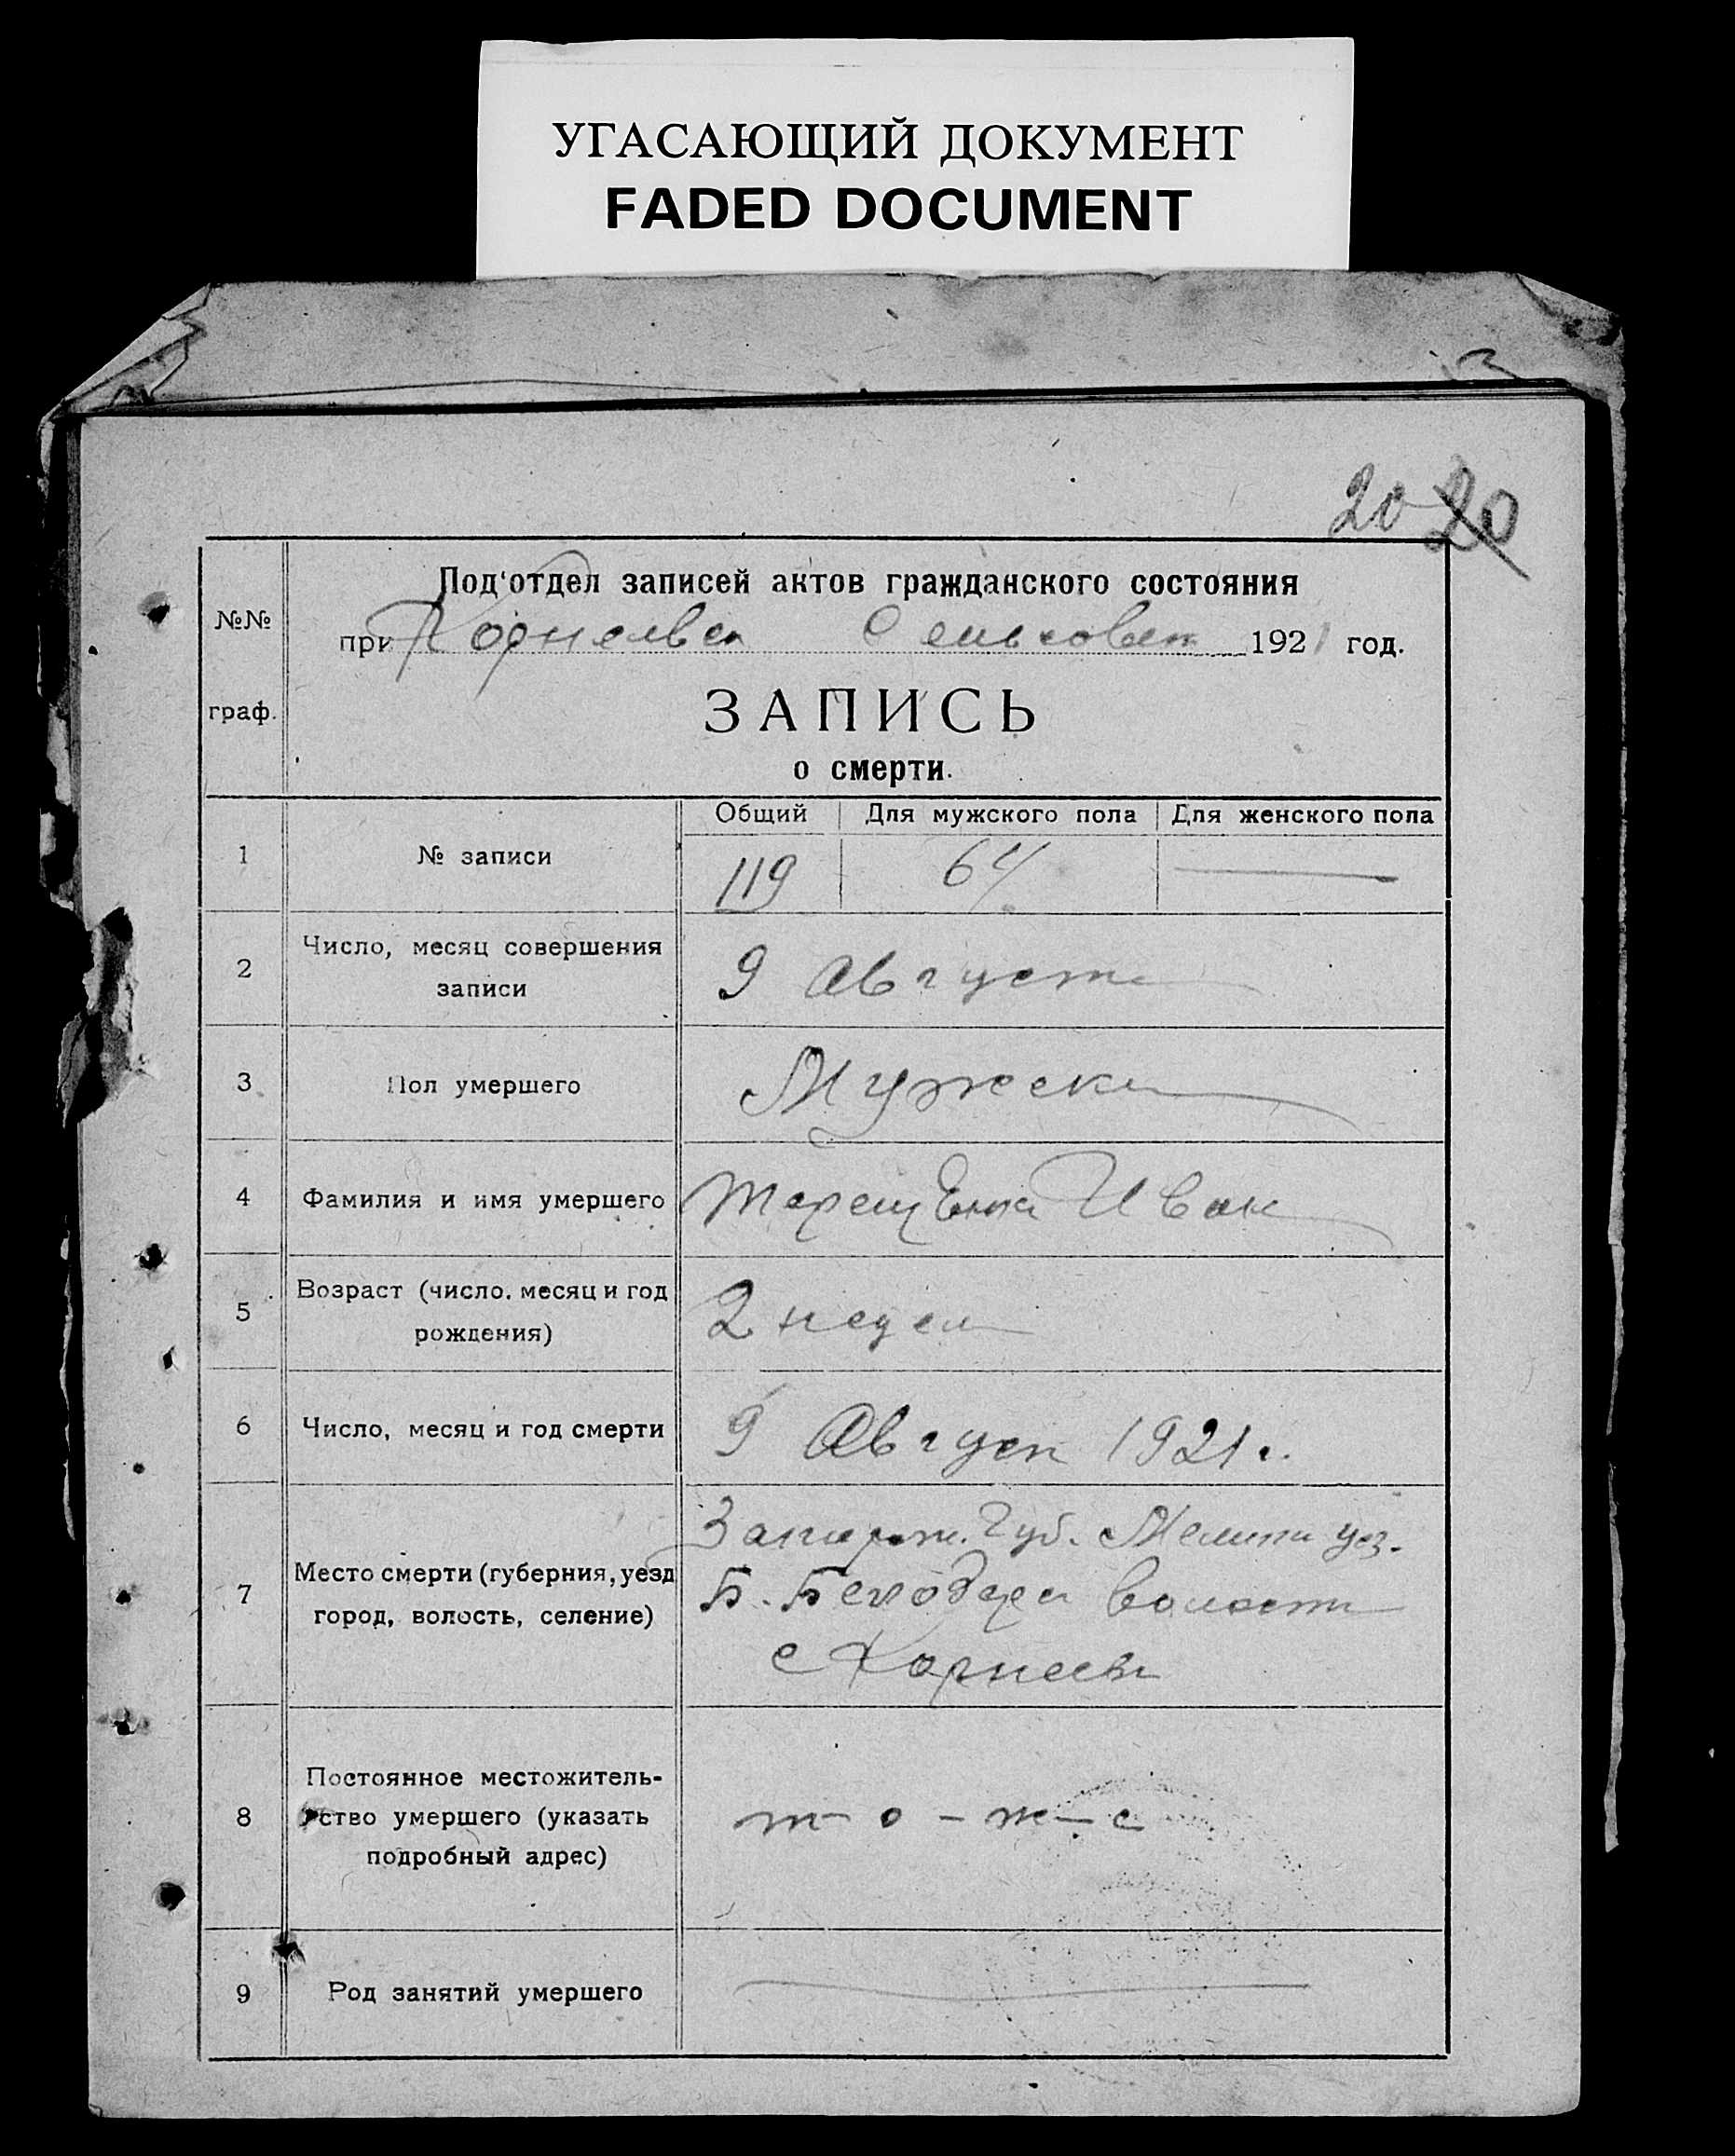 УГАСАЮЩИЙ ДОКУМЕНТ
FADED DOCUMENT
20 20
Под'отдел записей актов гражданского состояния
№№ граф.
при Корнеевск Сельсовет 1921 год.
ЗАПИСЬ
о смерти.
Общий Для мужского пола Для женского пола
1 № записи 119 64 —
2 Число, месяц совершения
записи
9 Август
3 Пол умершего Мужски
4 Фамилия и имя умершего Терещенко Иван
5 Возраст (число, месяц и год
рождения)
2 недел
6 Число, месяц и год смерти 9 Август 1921 г.
7 Место смерти (губерния, уезд
город, волость, селение)
Запорож. Губ. Мелит уез.
Б. Белозерс волости
с Корнеевк
8 Постоянное местожитель-
ство умершего (указать
подробный адрес)
то - же
9 Род занятий умершего —